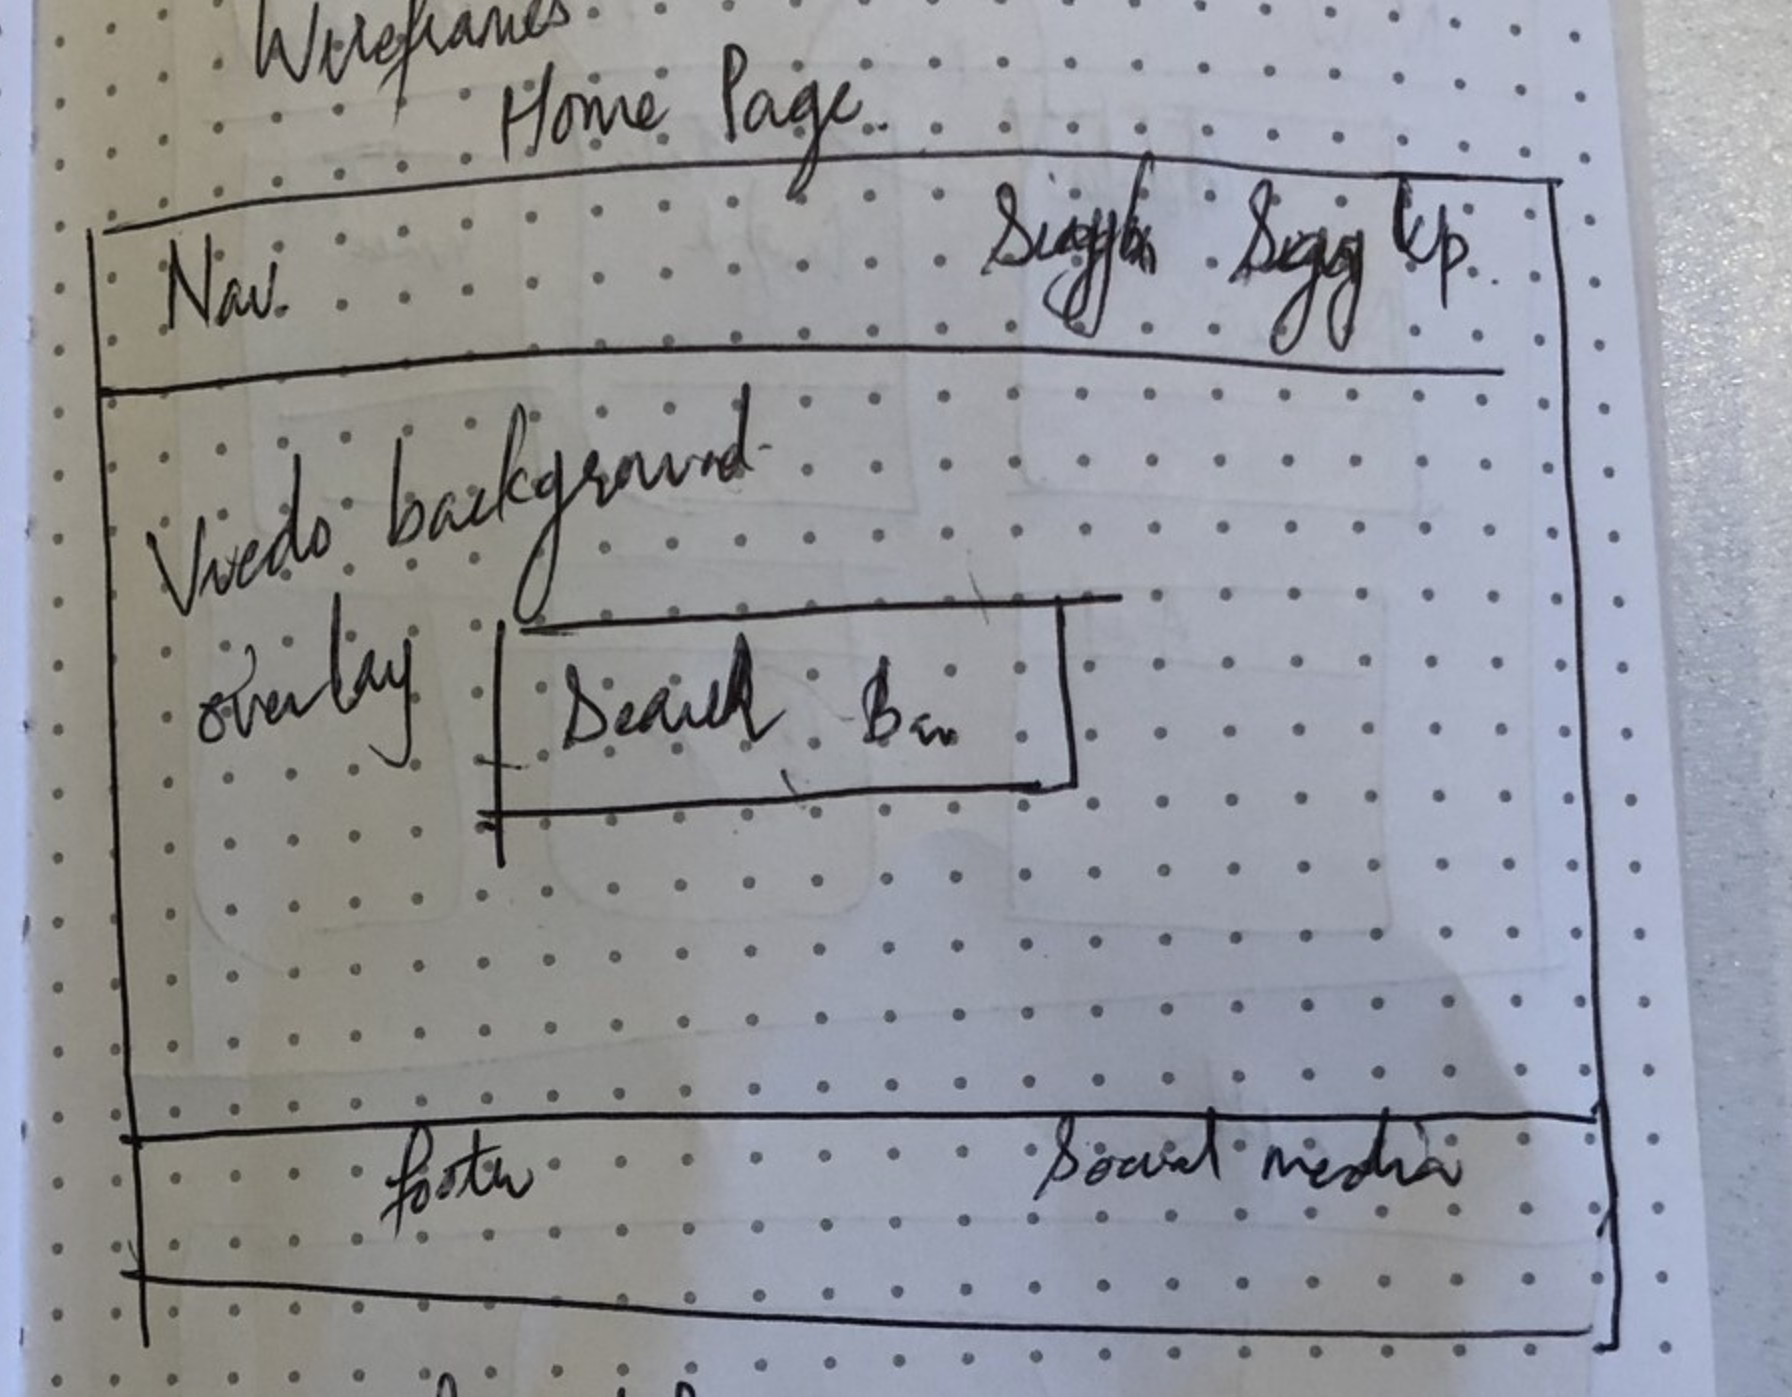 Wireframes.
Home Page.
Nav. Sign Up.
Viedo background
overlay
Search Bar
footer Social media